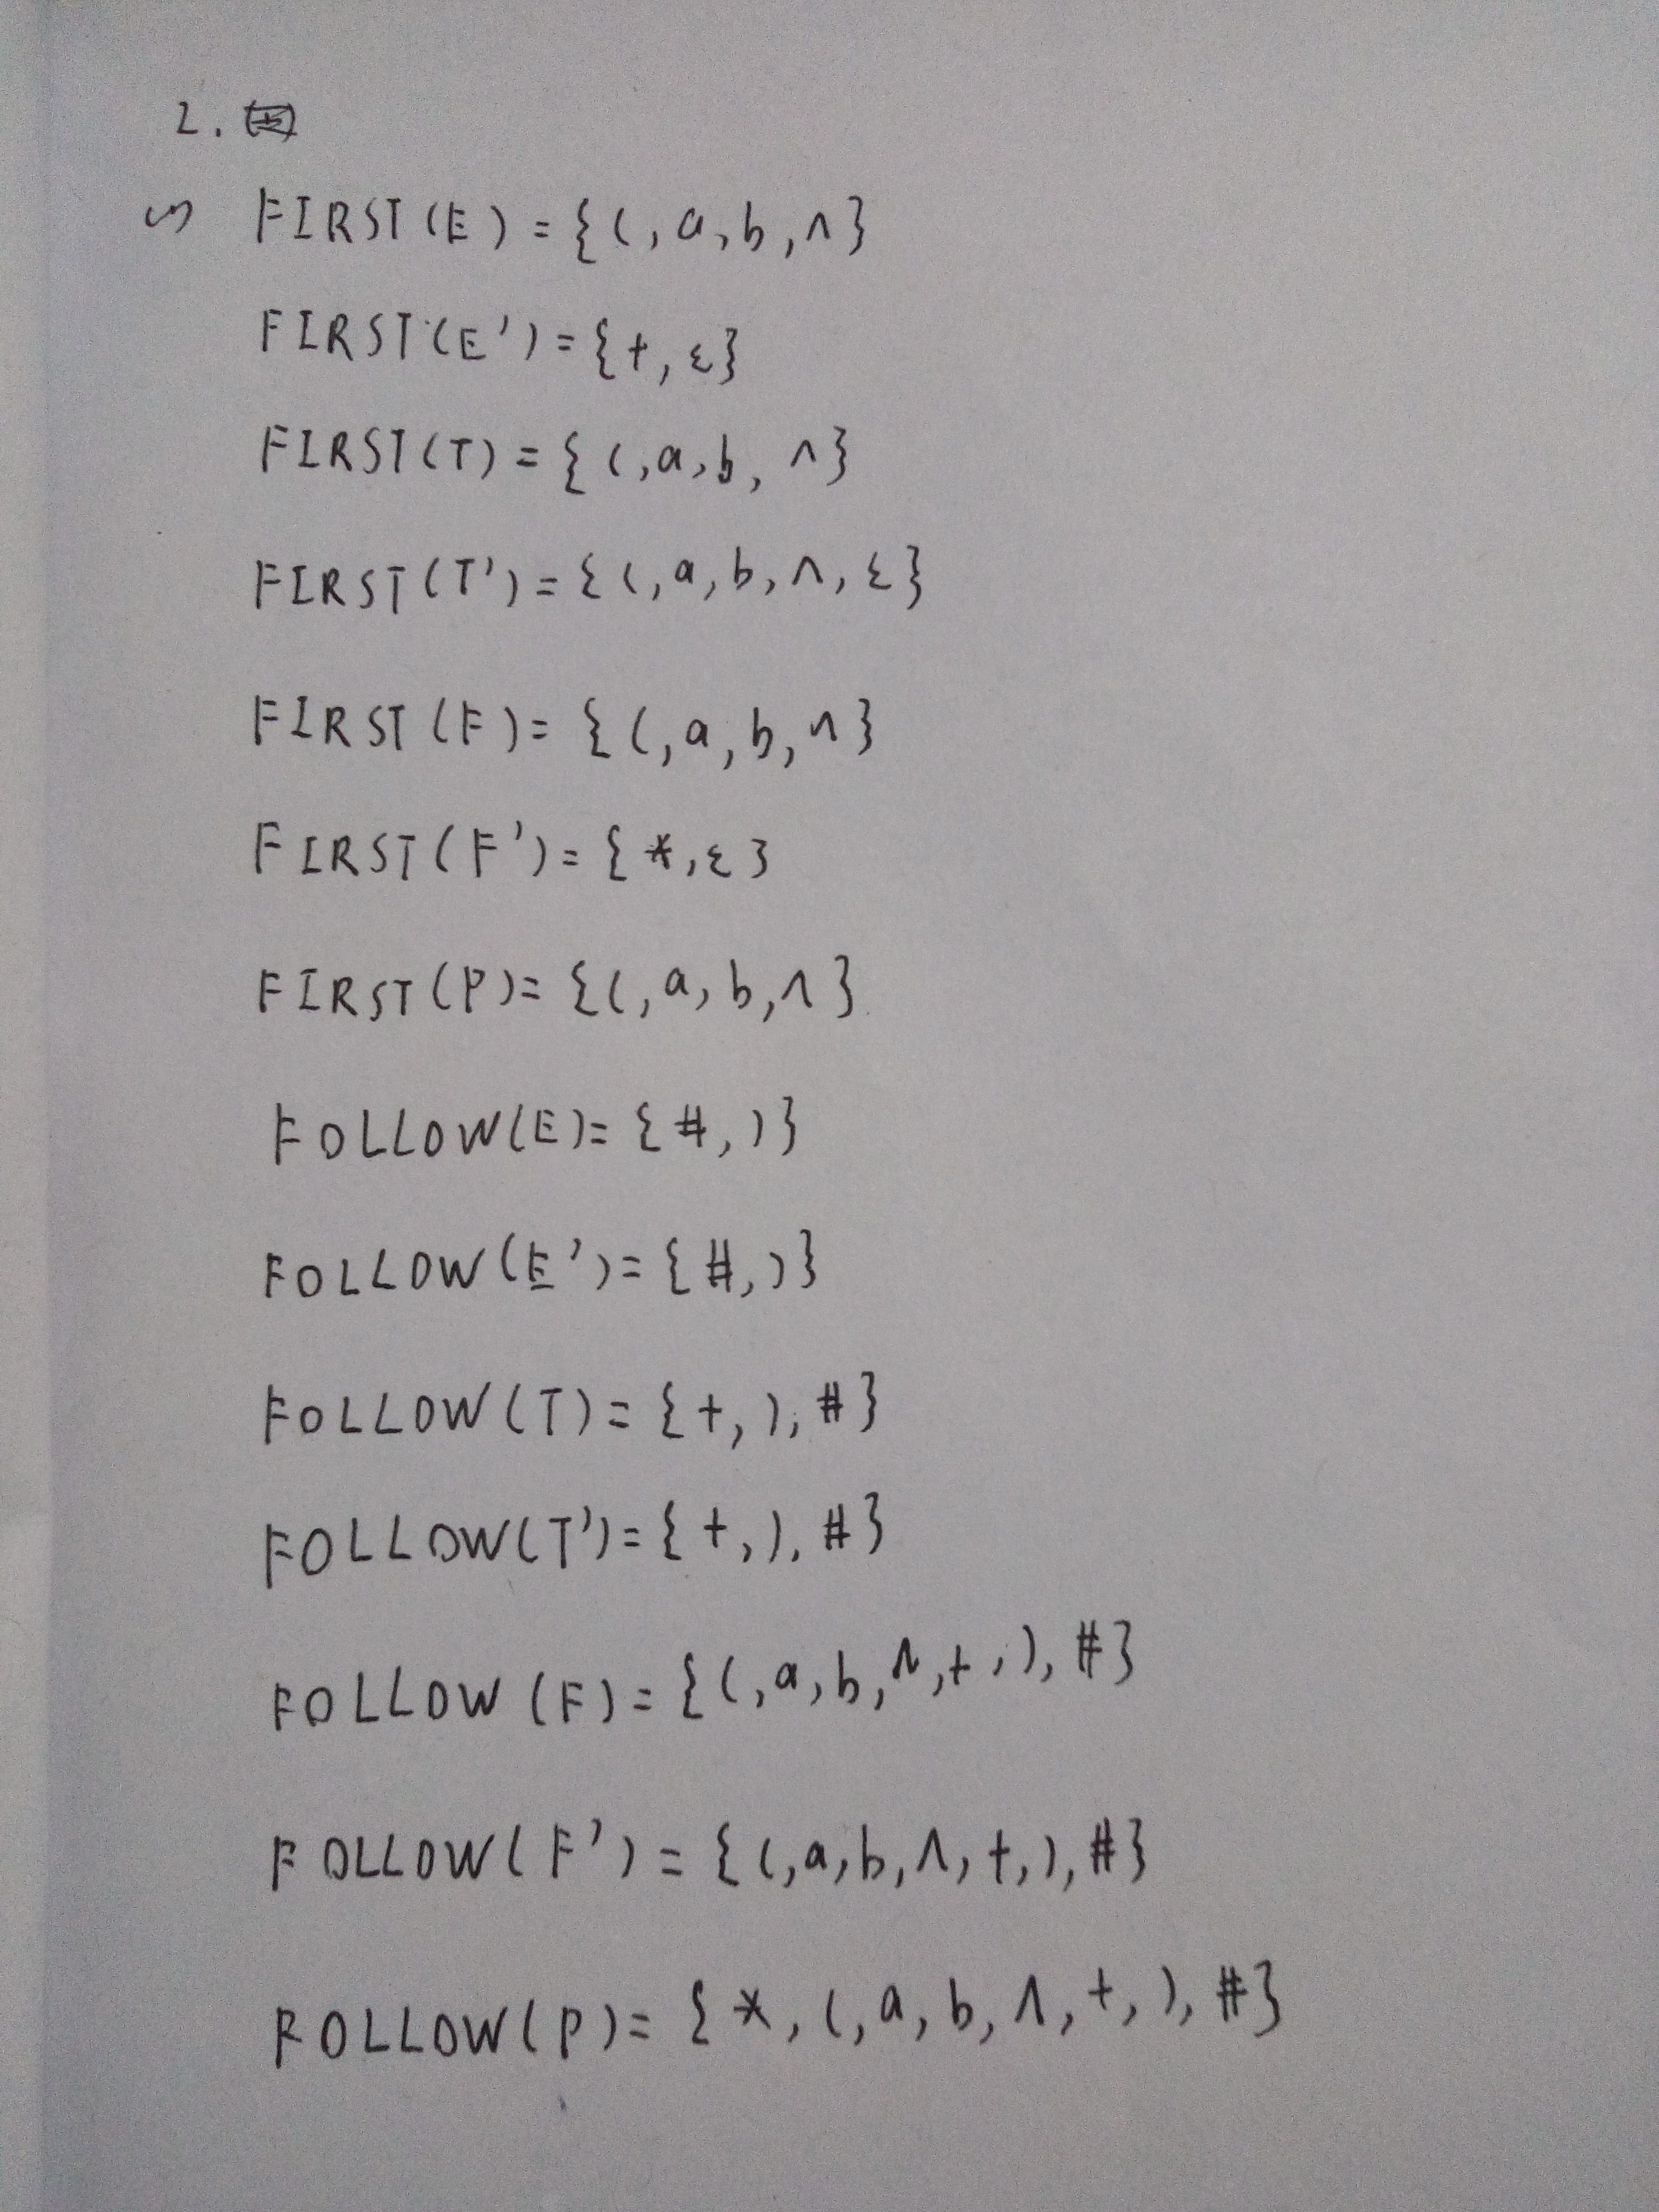 2.
(1) FIRST(E) = {(, a, b, ∧}
FIRST(E') = {+, ε}
FIRST(T) = {(, a, b, ∧}
FIRST(T') = {(, a, b, ∧, ε}
FIRST(F) = {(, a, b, ∧}
FIRST(F') = {*, ε}
FIRST(P) = {(, a, b, ∧}
FOLLOW(E) = {#, )}
FOLLOW(E') = {#, )}
FOLLOW(T) = {+, ), #}
FOLLOW(T') = {+, ), #}
FOLLOW(F) = {(, a, b, ∧, +, ), #}
FOLLOW(F') = {(, a, b, ∧, +, ), #}
FOLLOW(P) = {*, (, a, b, ∧, +, ), #}